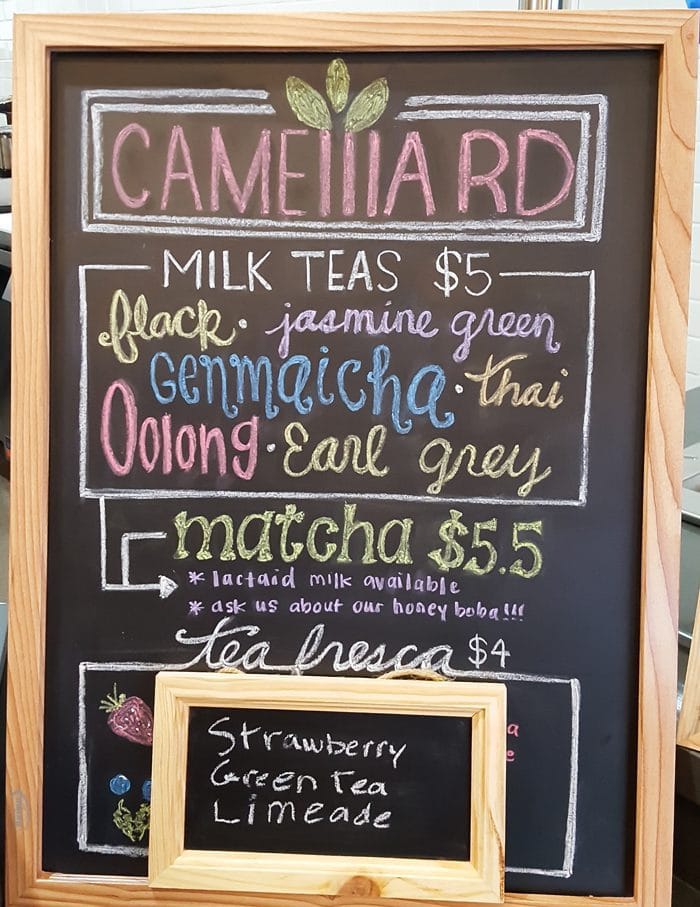 CAMEllIA RD
MILK TEAS $5
black · jasmine green
Genmaicha · thai
Oolong · Earl grey
matcha $5.5
* lactaid milk available
* ask us about our honey boba!!!
tea fresca $4
Strawberry
Green Tea
Limeade